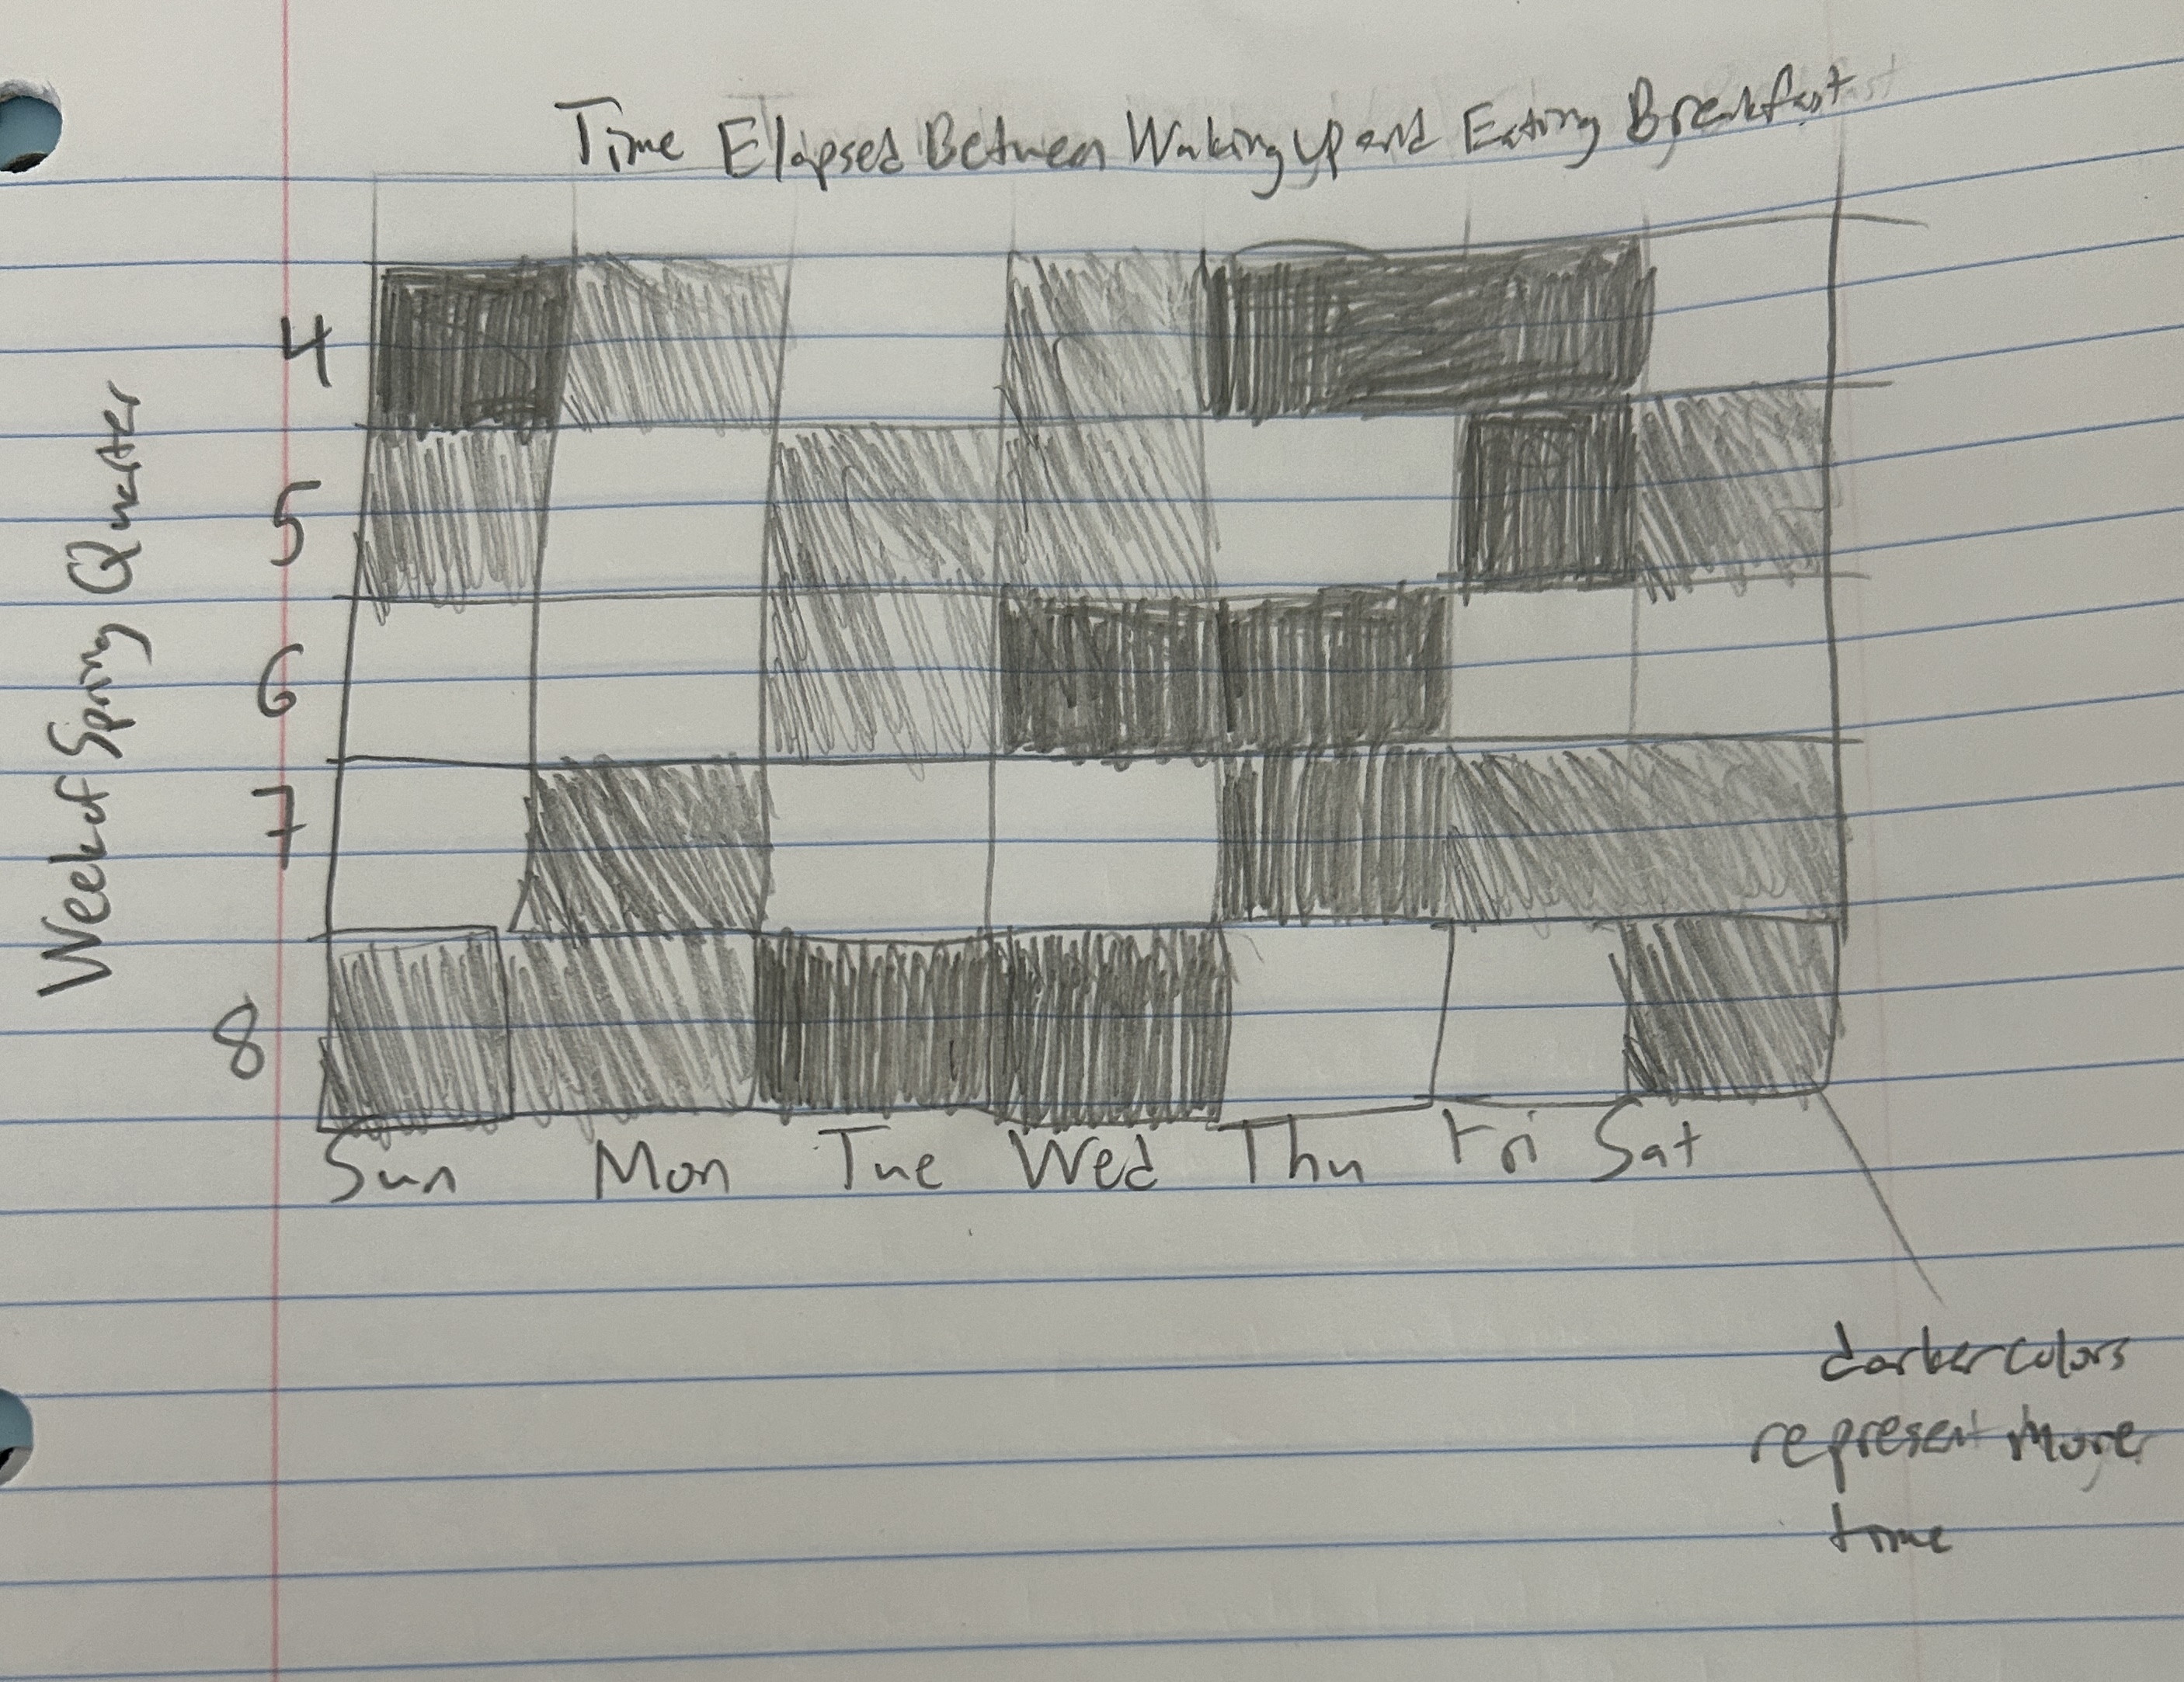 Time Elapsed Between Waking up and Eating Breakfast
Week of Spring Quarter
4
5
6
7
8
Sun Mon Tue Wed Thu Fri Sat
darker colors
represent more
time